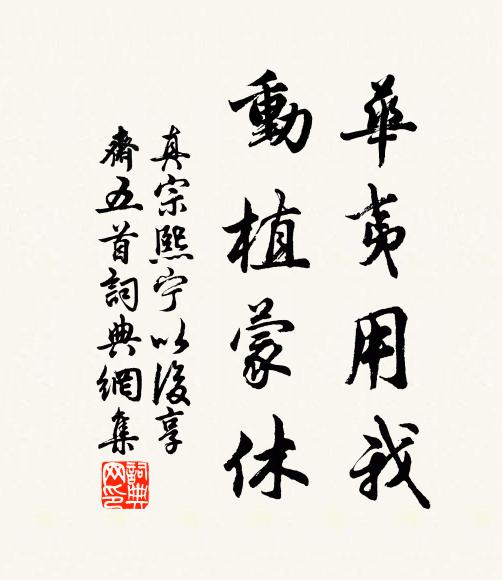 華夷用我
動植蒙休
真宗熙宁以後享
齋五首詞典網集